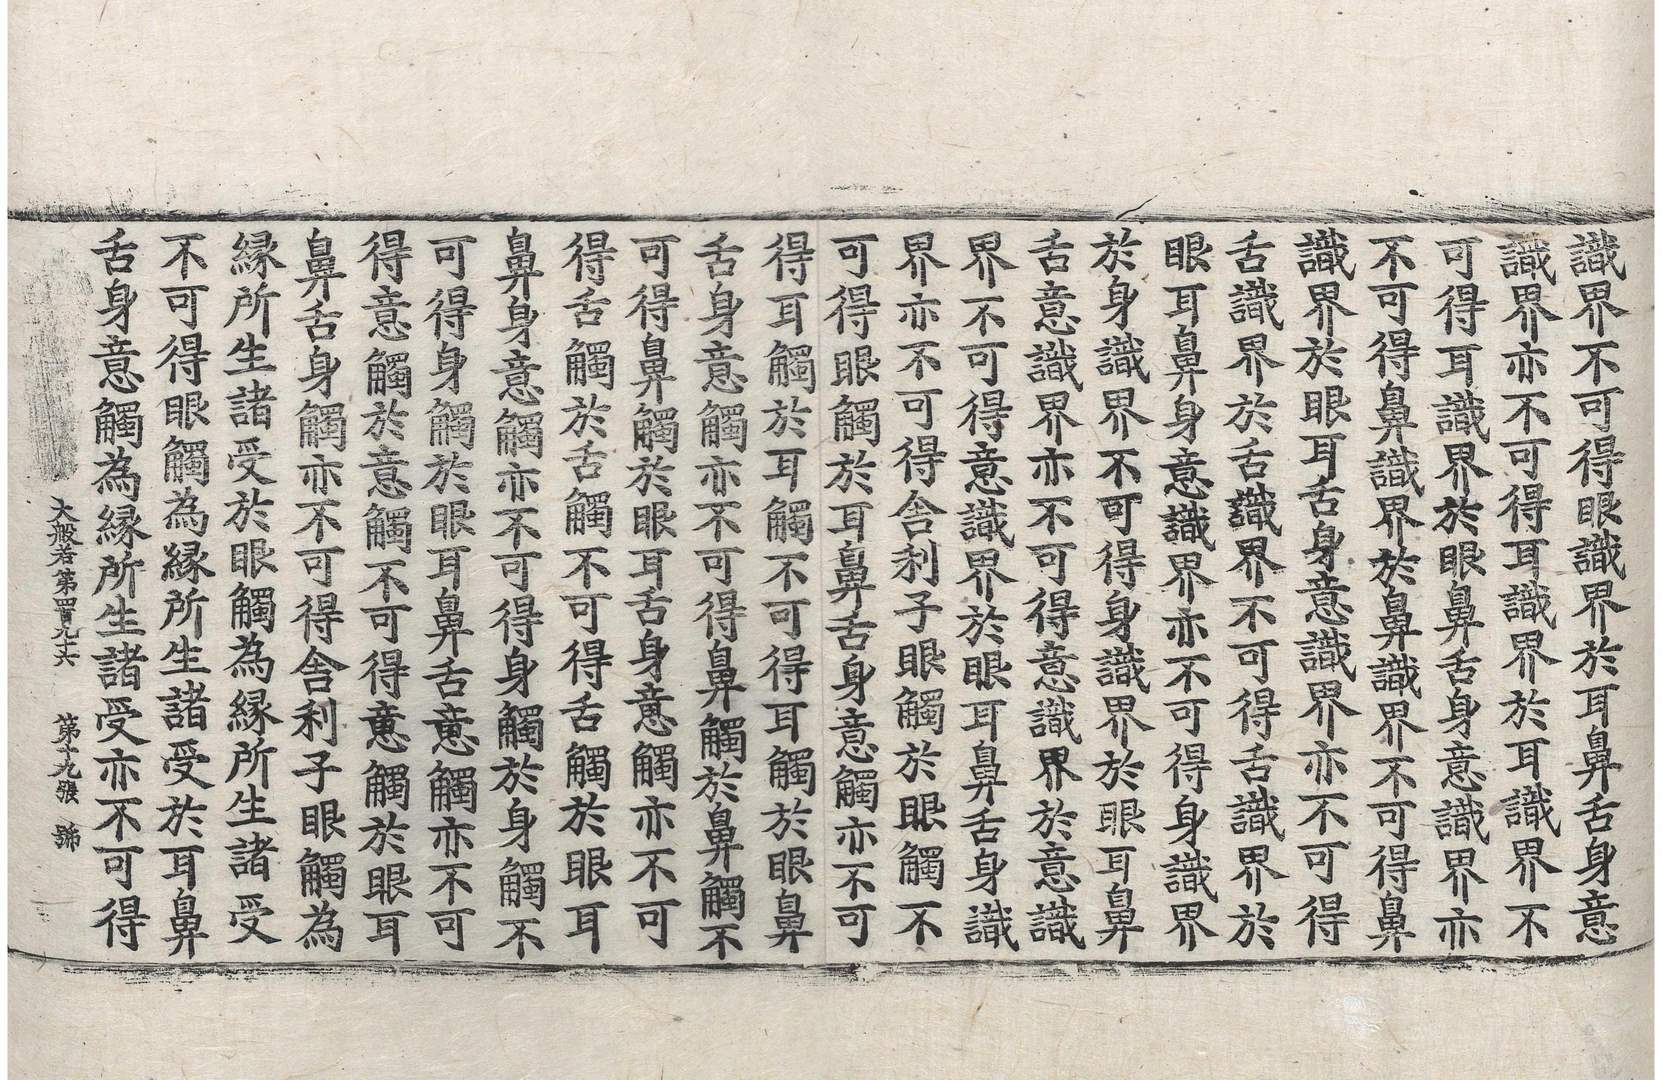 識界不可得眼識界於耳鼻舌身意
識界亦不可得耳識界於耳識界不
可得耳識界於眼鼻舌身意識界亦
不可得鼻識界於鼻識界不可得鼻
識界於眼耳舌身意識界亦不可得
舌識界於舌識界不可得舌識界於
眼耳鼻身意識界亦不可得身識界
於身識界不可得身識界於眼耳鼻
舌意識界亦不可得意識界於意識
界不可得意識界於眼耳鼻舌身識
界亦不可得舍利子眼觸於眼觸不
可得眼觸於耳鼻舌身意觸亦不可
得耳觸於耳觸不可得耳觸於眼鼻
舌身意觸亦不可得鼻觸於鼻觸不
可得鼻觸於眼耳舌身意觸亦不可
得舌觸於舌觸不可得舌觸於眼耳
鼻身意觸亦不可得身觸於身觸不
可得身觸於眼耳鼻舌意觸亦不可
得意觸於意觸不可得意觸於眼耳
鼻舌身觸亦不可得舍利子眼觸為
縁所生諸受於眼觸為縁所生諸受
不可得眼觸為縁所生諸受於耳鼻
舌身意觸為縁所生諸受亦不可得
大般若第四百九十六 第十九張 號